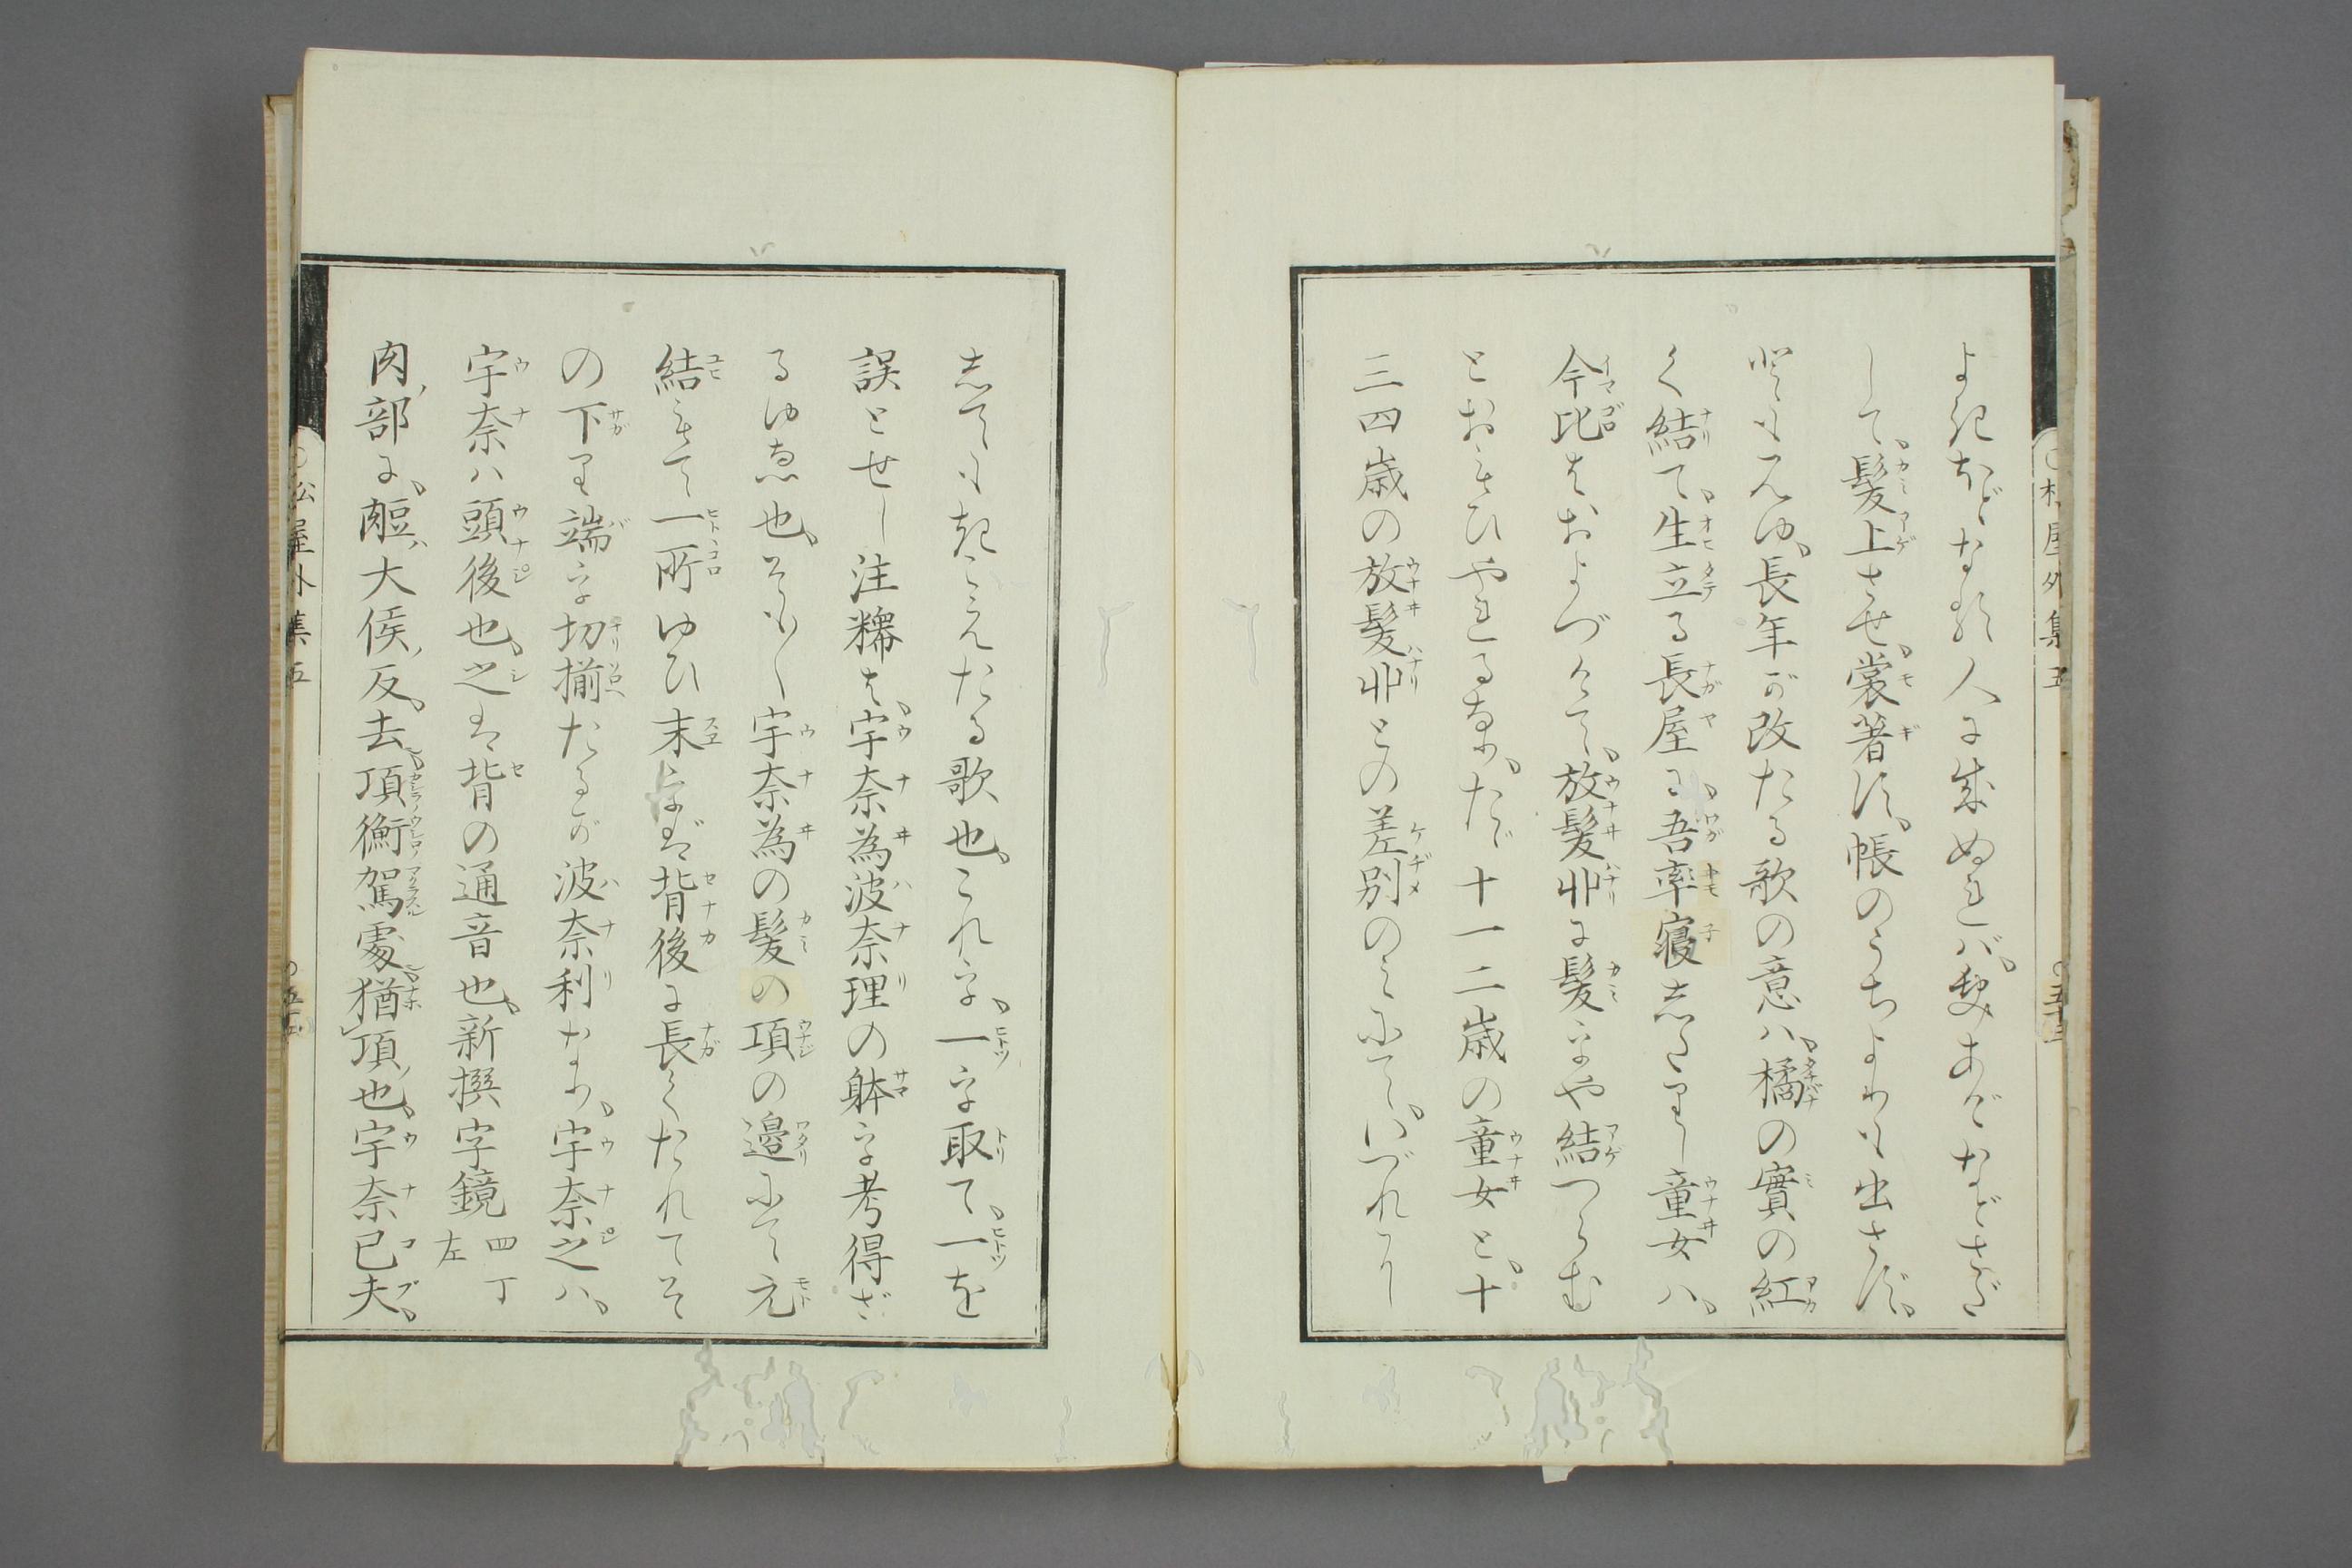 よきほどなる人に成ぬれバ、契あだなどさだ
して、髪上させ、裳著は、帳のうちよりも出さず、
長年が改たる歌の意ハ、橘の實の紅
く結て、生立る長屋に、吾率寝したりし童女ハ、
今比はおよづけて、放髪丱に髪をや結つらむ
とおもひやれる也、たゞ十一二歳の童女と、十
三四歳の放髪丱との差別のみにて、いづれにし
してもきこえたる歌也、これを、一を取て、一を
誤とせし注釋は、宇奈為波奈理の躰を考得ざ
るゆゑ也、そも〳〵宇奈為の髪の項の邊にて元
結もて一所ゆひ末をば背後に長くたれてそ
の下り端を切揃たるが波奈利なり、宇奈之ハ、
宇奈ハ頭後也、之は背の通音也、新撰字鏡四丁左
肉部に、脰、大侯反、去、頂衡駕處、猶頂也、宇奈己夫、
○松屋外集五